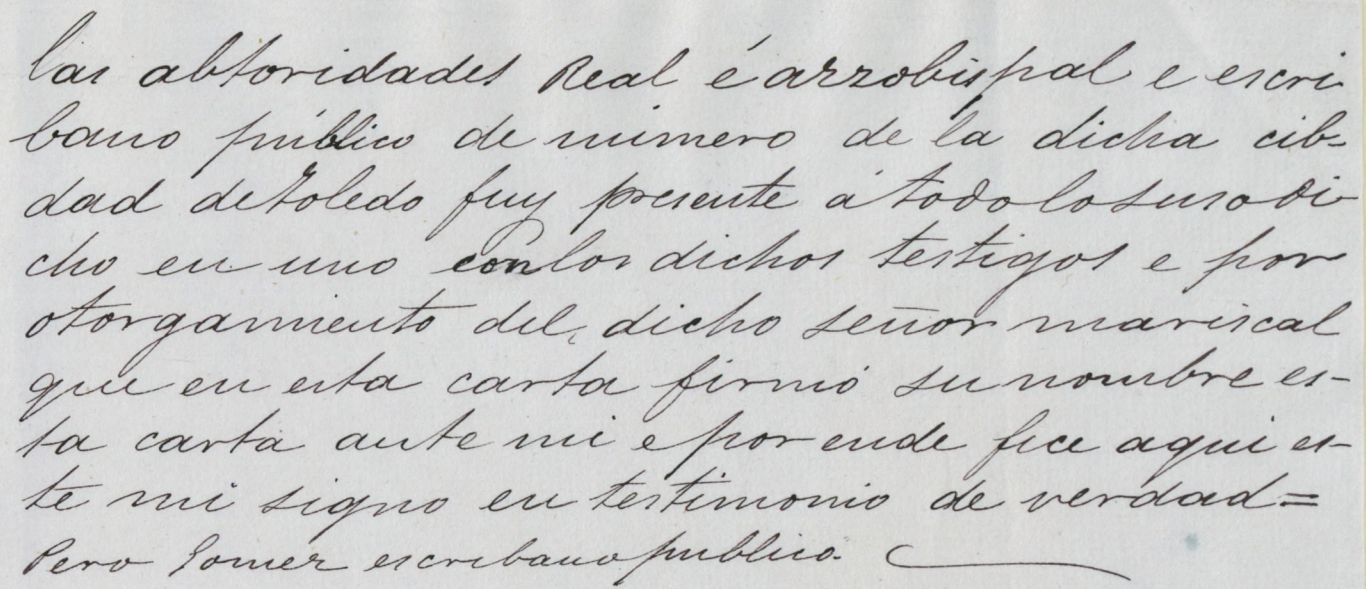 las abtoridades Real é arzobispal e escri
bano público de número de la dicha cib-
dad de Toledo fuy presente á todo lo susodi
cho en uno con los dichos testigos e por
otorgamiento del dicho señor mariscal
que en esta carta firmó su nombre es-
ta carta ante mi e por ende fice aqui es-
te mi signo en testimonio de verdad=
Pero Gomez escribano publico.